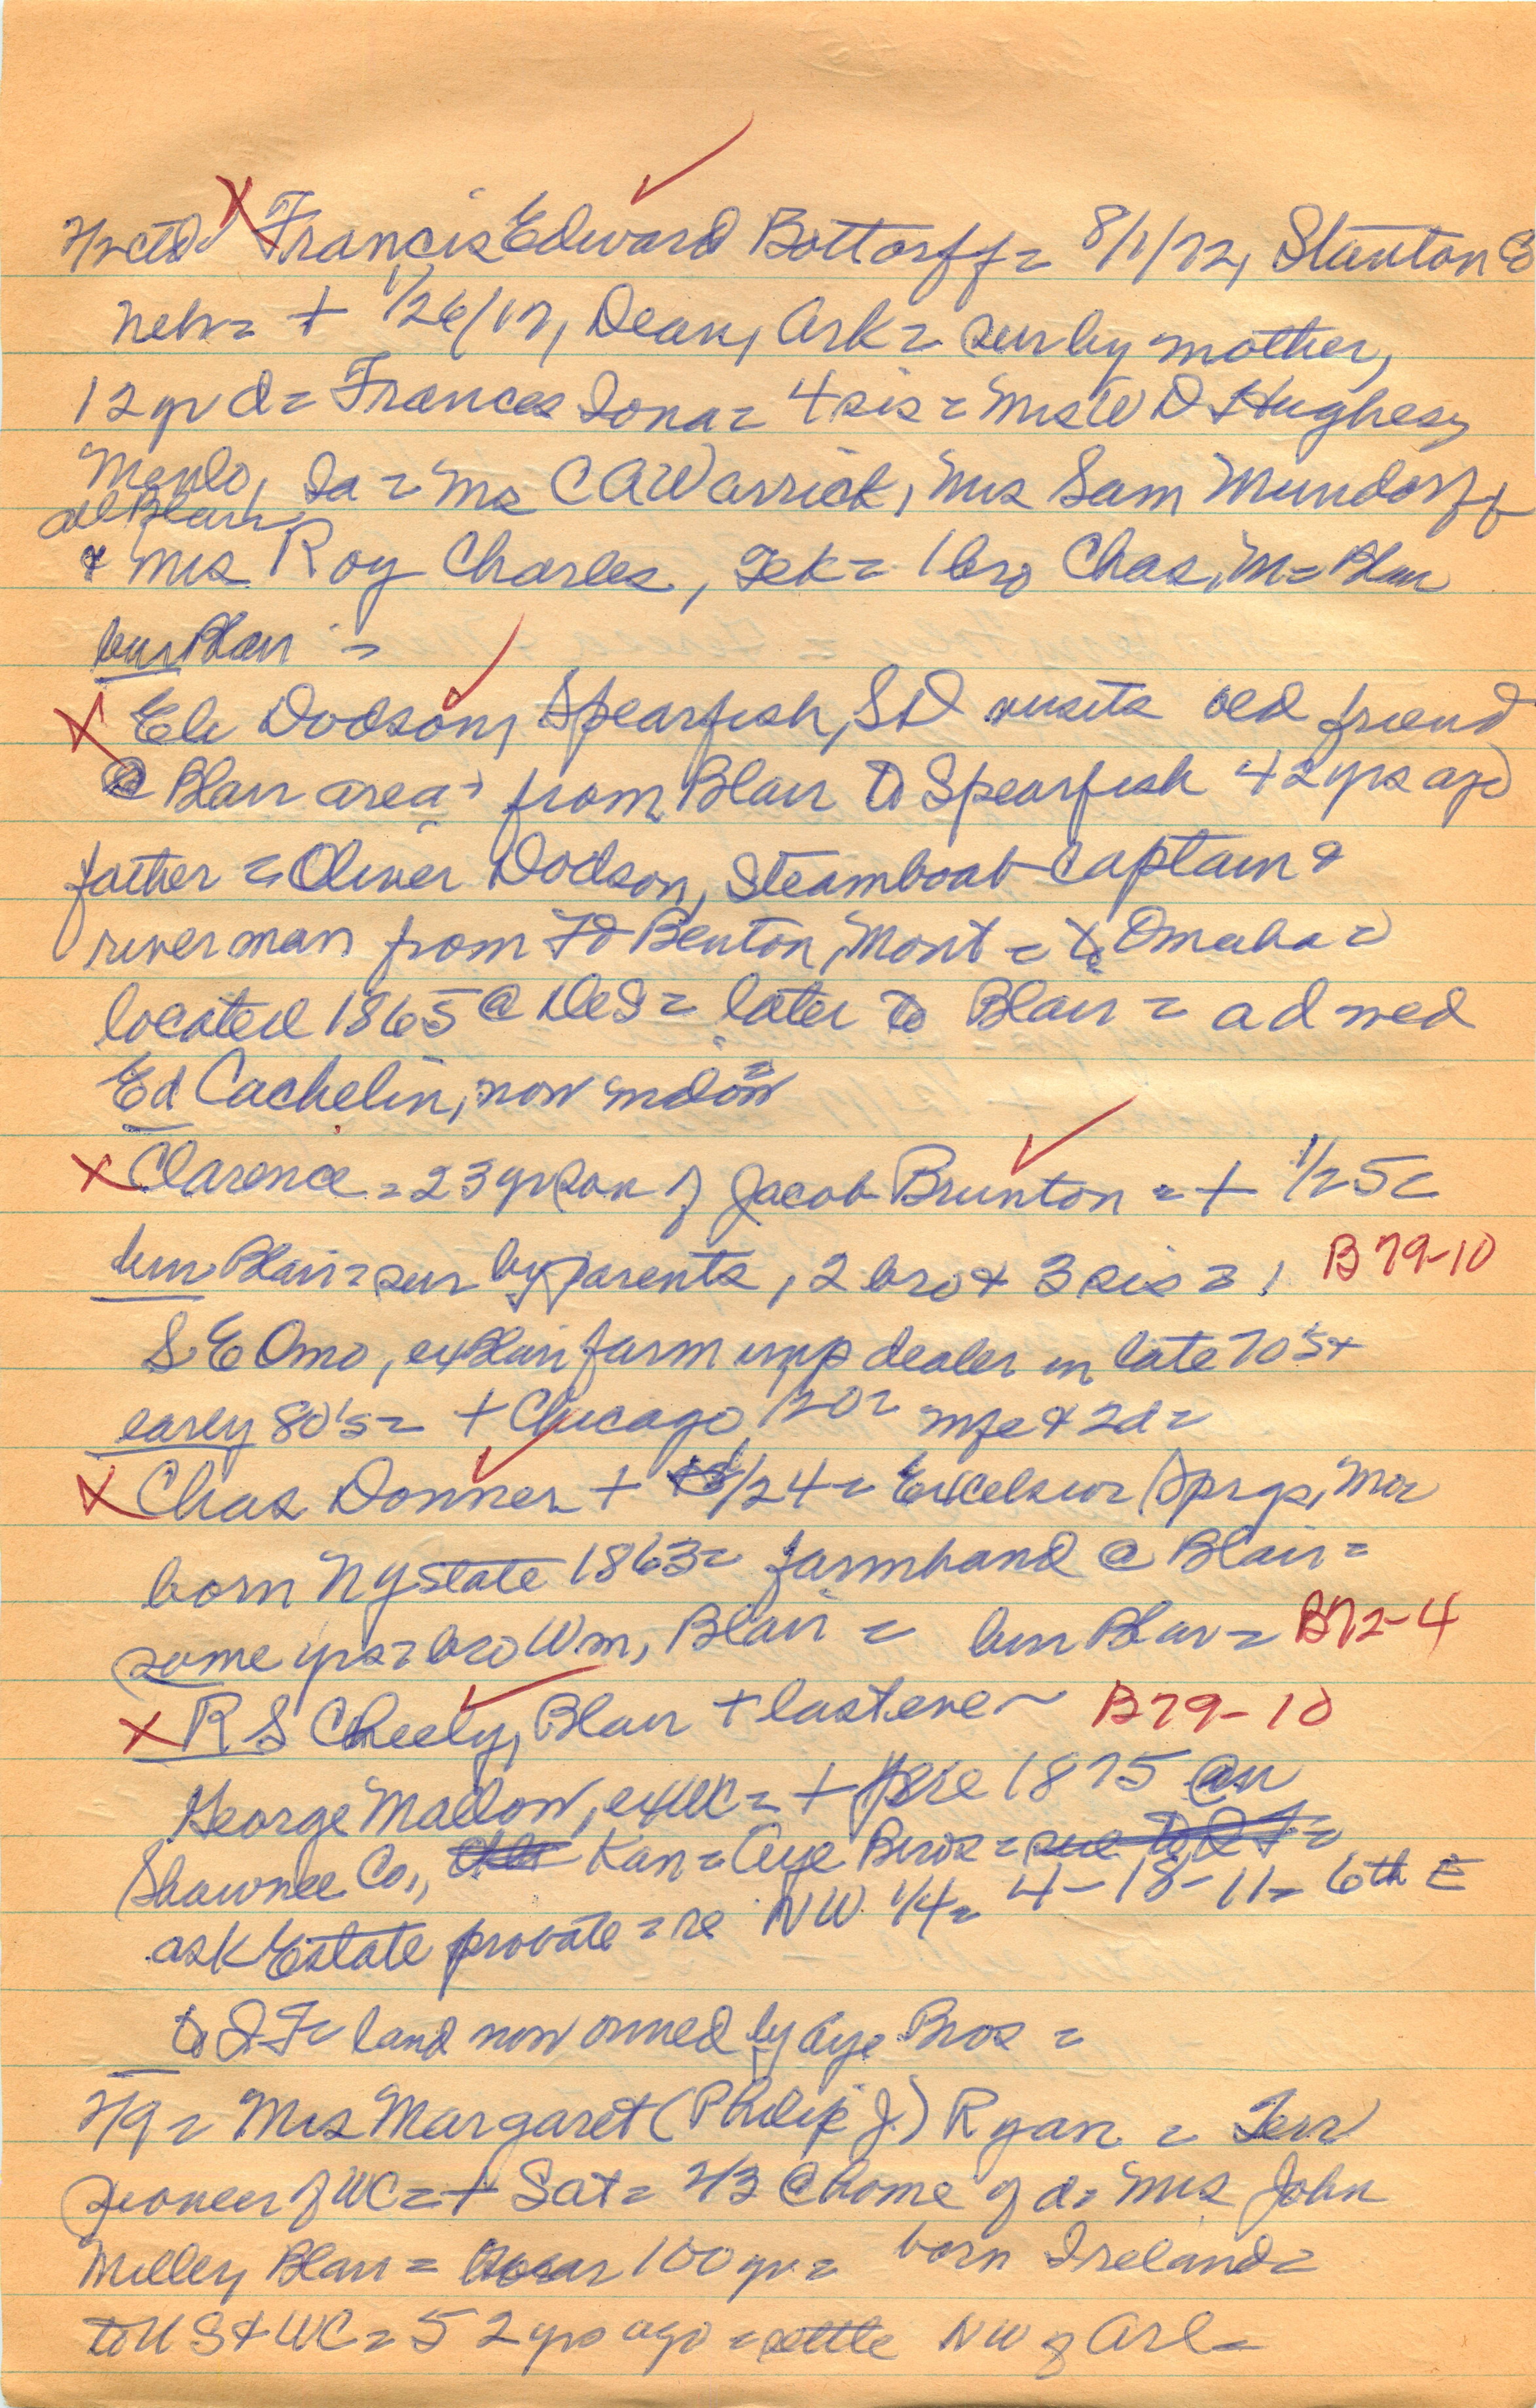 X Francis Edward Bottorff = 8/1/72, Stanton
Nebr = + 1/26/17, Dean, Ark = sur by mother,
12 yr d = Frances Iona = 4 sis = Mrs W D Hughes,
Menlo, Ia = Mrs C A Warrick, Mrs Sam Mundorff
all Blair
& Mrs Roy Charles, Tek = 1 bro Chas, M = Blair
bur Blair =
X Eli Dodson, Spearfish, SD visits old friend
@ Blair area = from Blair to Spearfish 42 yrs ago
father = Oliver Dodson, Steamboat Captain &
river man from Ft Benton, Mont = to Omaha =
located 1865 @ DeS = later to Blair = a d wed
Ed Cachelin, now widow =
X Clarence = 23 yr son of Jacob Brunton = + 1/25 =
bur Blair = sur by parents, 2 bro & 3 sis = B79-10
S E Omo, ex Blair farm imp dealer in late 70's &
early 80's = + Chicago 1/20 = wife & 2 d =
X Chas Donner + 1/24 = Excelsior Sprgs, Mo =
born NY state 1863 = farmhand @ Blair =
some yrs = bro Wm, Blair = bur Blair = B72-4
X R S Cheely, Blair + last eve ~ B79-10
George Mallow, ex WC = + 1875 @
Shawnee Co., Kan = Aye Bros =
ask Estate probate = re NW 1/4 = 4-18-11 = 6th E
to I F = land now owned by Aye Bros =
2/9 = Mrs Margaret (Philip J.) Ryan = Terr
pioneer of WC = + Sat = 2/3 @ home of d = Mrs John
Milley Blair = near 100 yr = born Ireland =
to U S & WC = 52 yrs ago = settle NW of Arl =